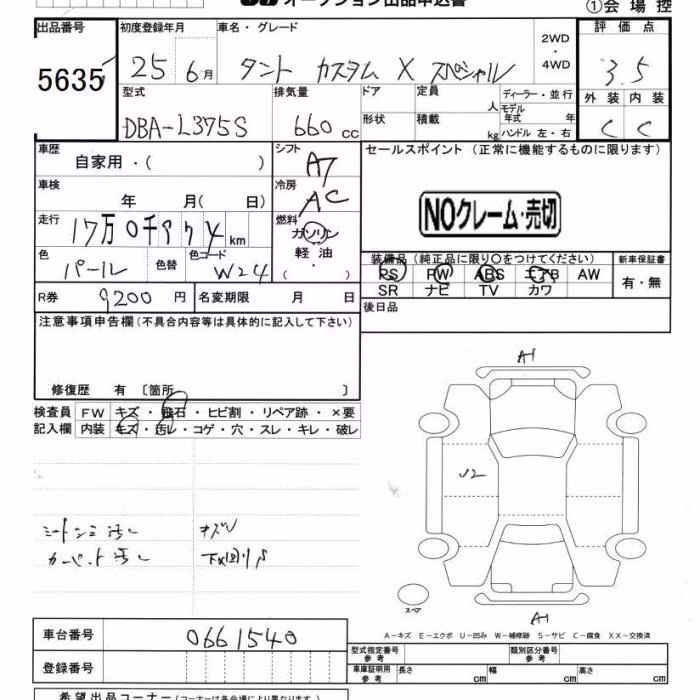 オークション出品申込書
①会場控
出品番号
5635
初度登録年月
25 6月
車名・グレード
タント カスタム X スペシャル
2WD
・
4WD
評価点
3.5
外装 内装
C C
型式
DBA-L375S
排気量
660 cc
ドア
形状
定員
人
積載
kg
ディーラー・並行
モデル
年式 年
ハンドル 左・右
車歴
自家用・( )
シフト
AT
セールスポイント (正常に機能するものに限ります)
NOクレーム・売切
車検
年 月( 日)
冷房
AC
走行
17万0千974km
燃料
ガソリン
軽油
( ・ )
色
パール
色替
色コード
W24
装備品(純正品に限り〇をつけてください)
PS PW ABS エアB AW
SR ナビ TV カワ
新車保証書
有・無
R券
9200 円
名変期限 月 日
後日品
注意事項申告欄(不具合内容等は具体的に記入して下さい)
修復歴 有 〔箇所 〕
検査員
記入欄
FW キズ・飛石・ヒビ割・リペア跡・×要
内装 キズ・汚レ・コゲ・穴・スレ・キレ・破レ
A1
U2
A1
スペア
シートシミ汚レ キズU
カーペット汚レ 下回りS
A-キズ E-エクボ U-凹み W-補修跡 S-サビ C-腐食 XX-交換済
車台番号
0661540
登録番号
型式指定番号
参考
類別区分番号
参考
車庫証明用
参考
長さ cm 幅 cm 高さ cm
希望出品コーナー(コーナーは各会場により異なります。)